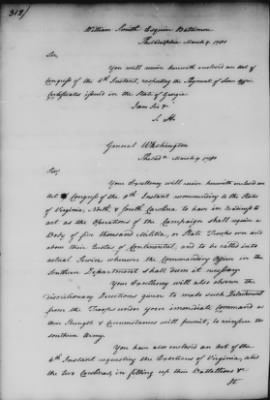 312)
William Smith Esquire Baltimore
Philadelphia March 9. 1781
Sir,
You will receive herewith enclosed an Act of
Congress of the 6th Instant, respecting the Payment of Loan Office
Certificates issued in the State of Georgia
I am Sir &c
S. H.
General Washington
Philad.ª March 9. 1781
Sir,
Your Excellency will receive herewith enclosed an
Act of Congress of the 8th Instant recommending to the States of
Virginia, North & South Carolina to have in readiness to
act as the Operations of the Campaign shall require a
Body of five thousand Militia, or State Troops over and
above their Quotas of Continental, and to be called into
actual Service whenever the Commanding Officer in the
Southern Department shall deem it necessary.
Your Excellency will also observe the
discretionary Directions given to make such Detachment
from the Troops under your immediate Command as
their Strength & Circumstances will permit, to reinforce the
southern Army.
You have also enclosed an Act of the
6th Instant requesting the Executives of Virginia, and
the two Carolinas, in filling up their Battallions &